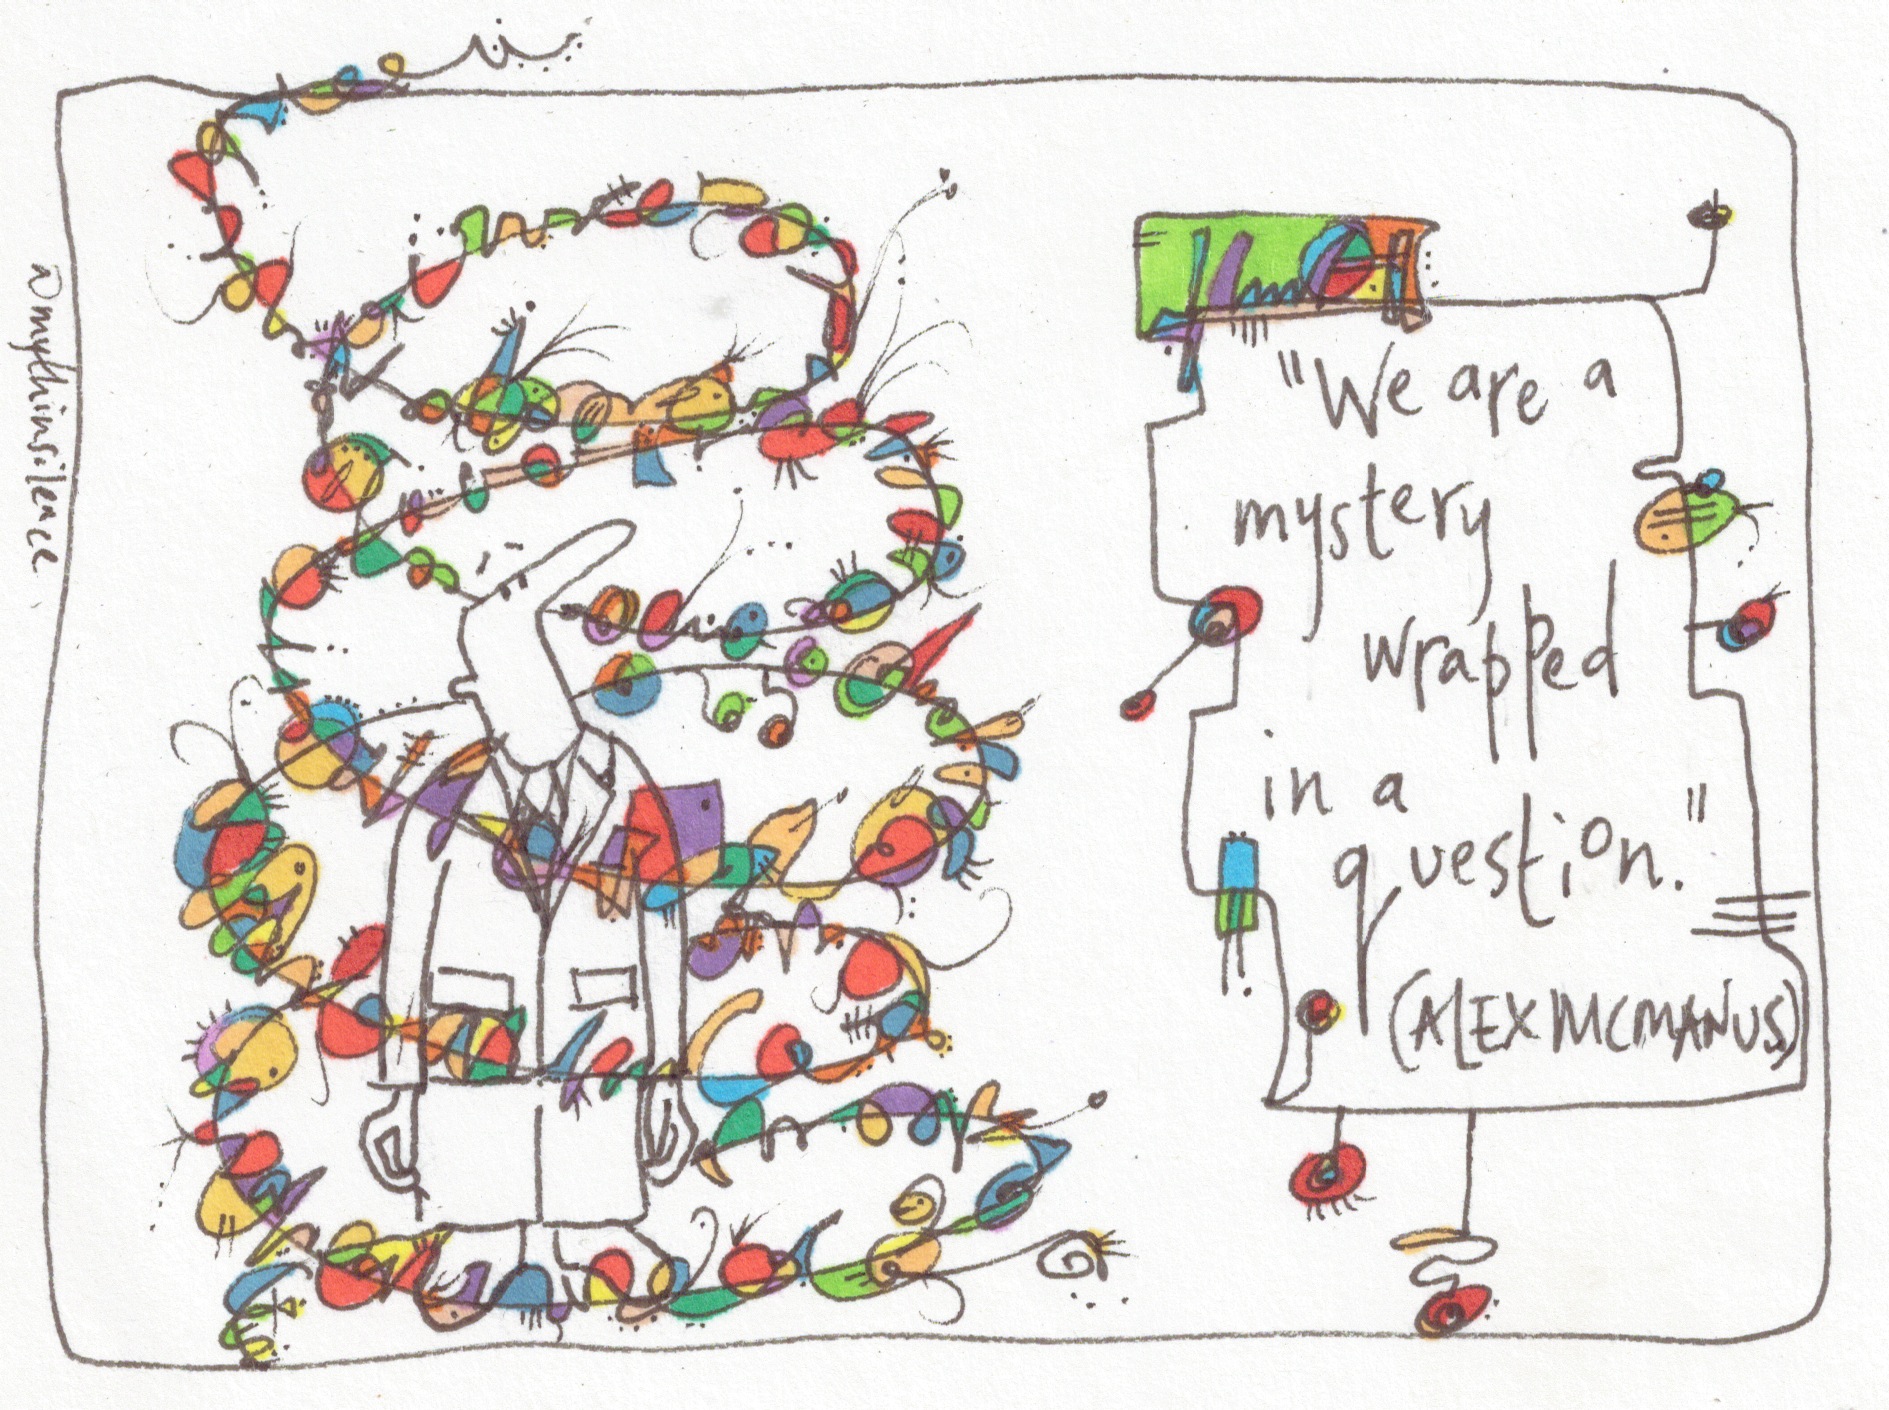 "We are a
mystery
wrapped
in a
question."
(ALEX MCMANUS)